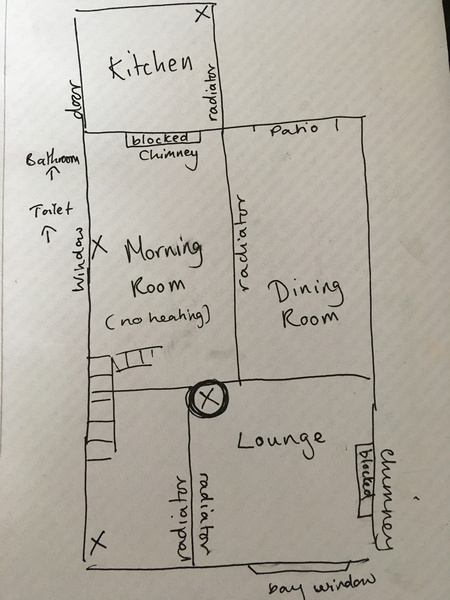 X
Kitchen
door
radiator
blocked
Chimney
Patio
Bathroom
↑
Toilet
↑
Window
X
Morning
Room
(no heating)
radiator
Dining
Room
X
Lounge
blocked
Chimney
radiator
radiator
X
bay window